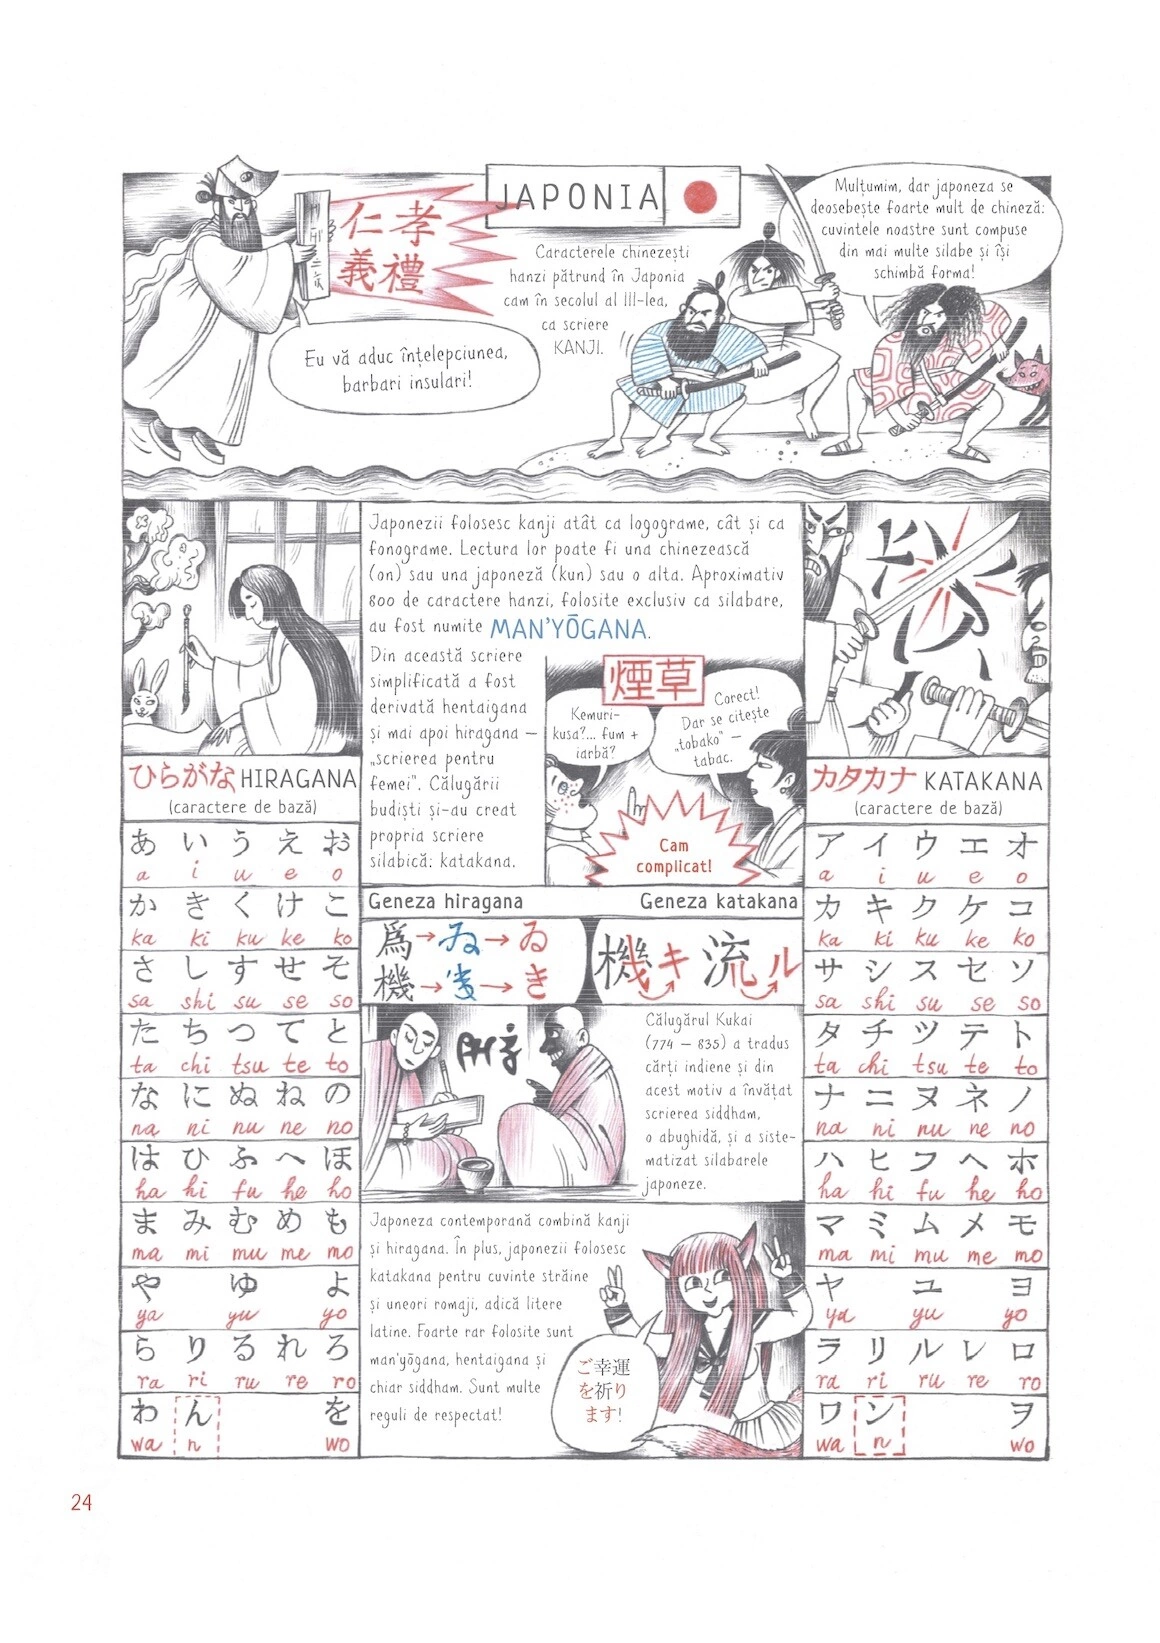 JAPONIA
仁孝
義禮
Eu vă aduc înțelepciunea,
barbari insulari!
Caracterele chinezești
hanzi pătrund în Japonia
cam în secolul al III-lea,
ca scriere
KANJI.
Mulțumim, dar japoneza se
deosebește foarte mult de chineză:
cuvintele noastre sunt compuse
din mai multe silabe și își
schimbă forma!
Japonezii folosesc kanji atât ca logograme, cât și ca
fonograme. Lectura lor poate fi una chinezească
(on) sau una japoneză (kun) sau o alta. Aproximativ
800 de caractere hanzi, folosite exclusiv ca silabare,
au fost numite MAN'YŌGANA.
Din această scriere
simplificată a fost
derivată hentaigana
și mai apoi hiragana –
„scrierea pentru
femei”. Călugării
budiști și-au creat
propria scriere
silabică: katakana.
煙草
Kemuri-
kusa?... fum +
iarbă?
Corect!
Dar se citește
„tobako” –
tabac.
Cam
complicat!
ひらがな HIRAGANA
(caractere de bază)
あ い う え お
a i u e o
か き く け こ
ka ki ku ke ko
さ し す せ そ
sa shi su se so
た ち つ て と
ta chi tsu te to
な に ぬ ね の
na ni nu ne no
は ひ ふ へ ほ
ha hi fu he ho
ま み む め も
ma mi mu me mo
や ゆ よ
ya yu yo
ら り る れ ろ
ra ri ru re ro
わ ん を
wa n wo
Geneza hiragana
爲→ゐ→ゐ
機→→き
Geneza katakana
機キ 流ル
Călugărul Kukai
(774 – 835) a tradus
cărți indiene și din
acest motiv a învățat
scrierea siddham,
o abughidă, și a siste-
matizat silabarele
japoneze.
Japoneza contemporană combină kanji
și hiragana. În plus, japonezii folosesc
katakana pentru cuvinte străine
și uneori romaji, adică litere
latine. Foarte rar folosite sunt
man'yōgana, hentaigana și
chiar siddham. Sunt multe
reguli de respectat!
ご幸運
を祈り
ます!
カタカナ KATAKANA
(caractere de bază)
ア イ ウ エ オ
a i u e o
カ キ ク ケ コ
ka ki ku ke ko
サ シ ス セ ソ
sa shi su se so
タ チ ツ テ ト
ta chi tsu te to
ナ ニ ヌ ネ ノ
na ni nu ne no
ハ ヒ フ ヘ ホ
ha hi fu he ho
マ ミ ム メ モ
ma mi mu me mo
ヤ ユ ヨ
ya yu yo
ラ リ ル レ ロ
ra ri ru re ro
ワ ン ヲ
wa n wo
24